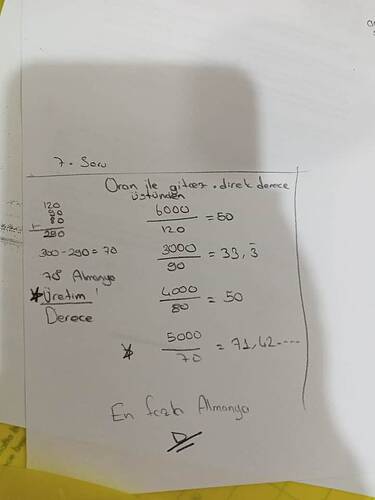 7. Soru
Oran ile gitcez. direk derece
üstünden
120
90
80
+
290
300-290=70
70° Almanya
Üretim
Derece
6000/120 = 50
3000/90 = 33,3̄
4000/80 = 50
5000/70 = 71,42----
En fazla Almanya
D